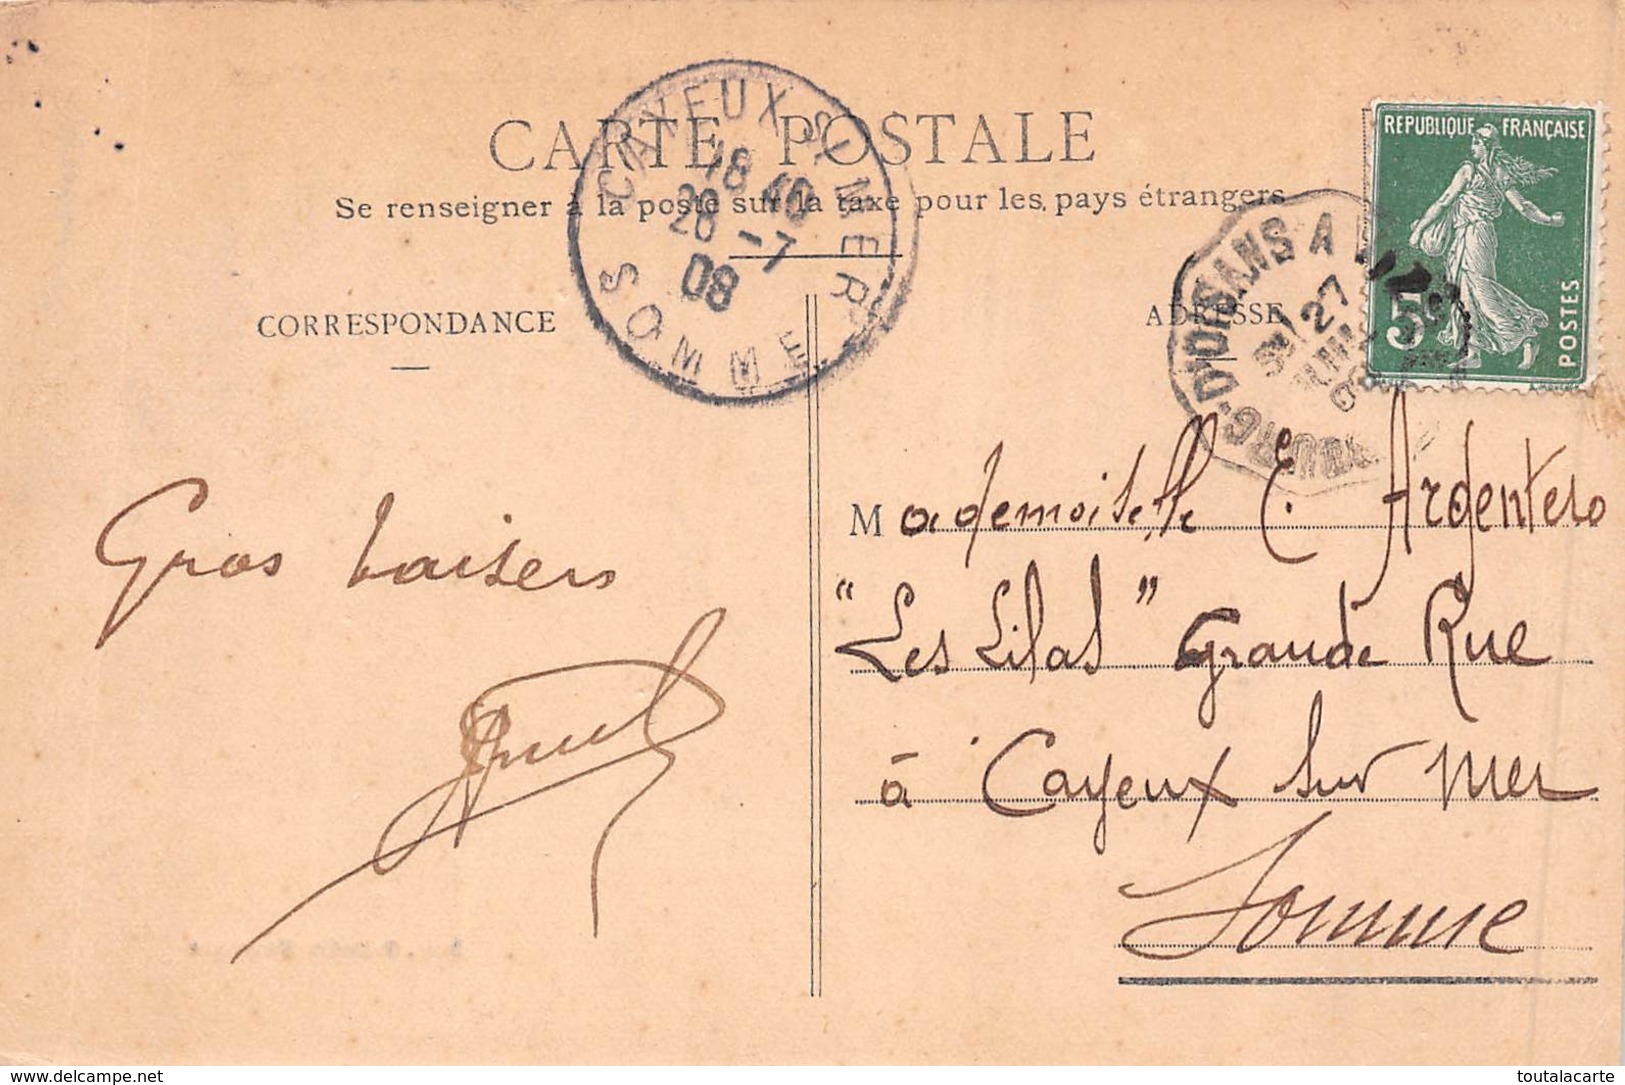 CARTE POSTALE
Se renseigner à la poste sur la taxe pour les pays étrangers
CAYEUX-S-MER
18 40
28 -7
08
SOMME
REPUBLIQUE FRANÇAISE
5c
POSTES
BOURG-D'OISANS A
27
CORRESPONDANCE
ADRESSE
Gros baisers
Mademoiselle E. Argentero
"Les Lilas" Grande Rue
à Cayeux sur mer
Somme
www.delcampe.net
toutalacarte